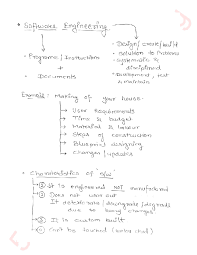 * Software Engineering
• Design / create / build
• Solution to Problems
• Systematic & disciplined
• Development, test & maintain
• Programs / Instructions
• Documents
Example: Making of your house.
→ User Requirements
→ Time & budget
→ Material & labour
→ Steps of construction
→ Blueprint / designing
→ Changes / updates
* Characteristics of S/w:
① It is engineered not manufactured
② Does not wear out
It deteriorate /
due to many "changes"
③ It is custom built
④ Can't be touched